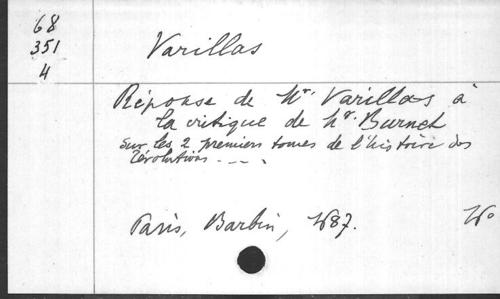 68
351
4
Varillas
Réponse de Mr. Varillas à
la critique de Mr. Burnet
sur les 2 premiers tomes de l'histoire des
révolutions - - -
Paris, Barbin, 1687.